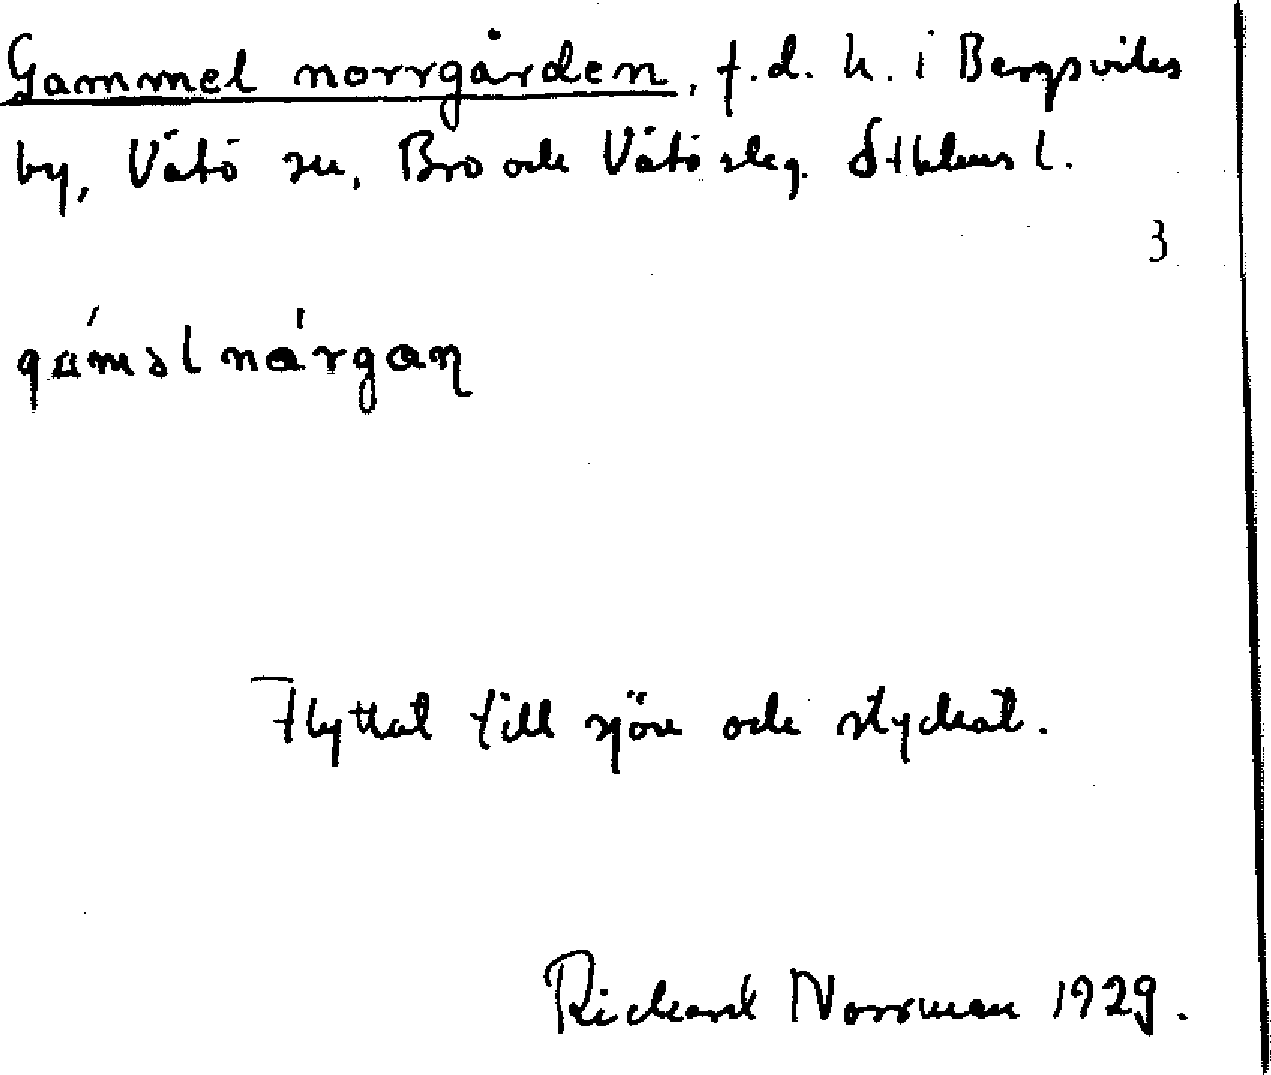 Gammel norrgården, f.d. h. i Bergsviks
by, Vätö sn, Bro och Vätö sklg. Sthlms l.
3
gáməl nárgan̩
Flyttat till sjön och styckat.
Rickard Norrman 1929.